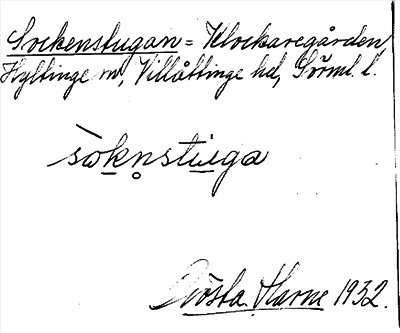 Sockenstugan = Klockaregården,
Hyltinge sn, Villåttinge hd, Sörml. l.
sòkn̥stùga
Gösta Harne 1932.